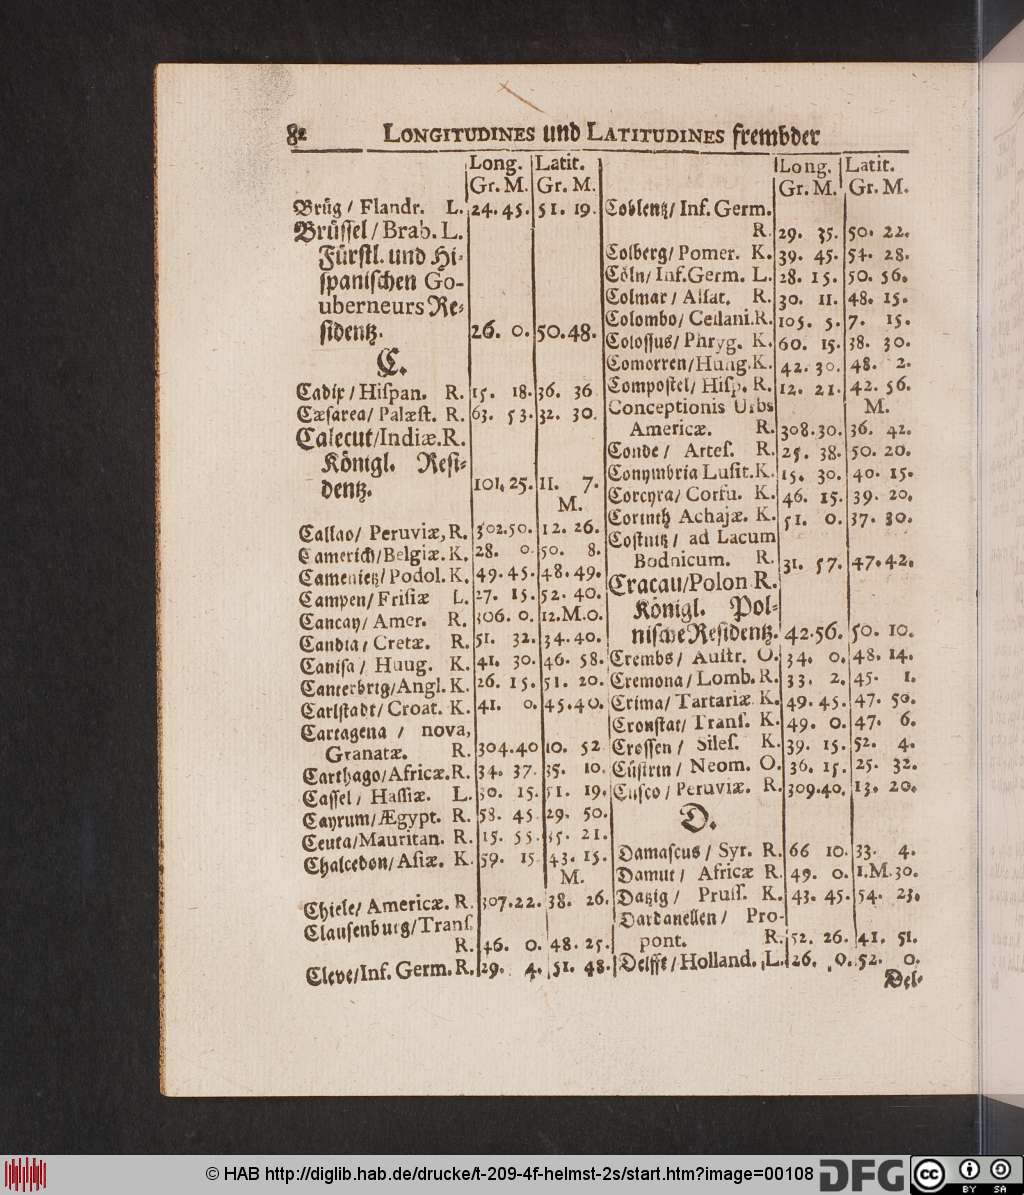 82 LONGITUDINES und LATITUDINES frembder
Long. Latit.
Gr. M. Gr. M.
Brüg / Flandr. L. 24. 45. 51. 19.
Brüssel / Brab. L.
Fürstl. und Hi-
spanischen Go-
uberneurs Re-
sidentz. 26. 0. 50. 48.
C.
Cadix / Hispan. R. 15. 18. 36. 36
Cæsarea / Palæst. R. 63. 53. 32. 30.
Calecut / Indiæ. R.
Königl. Resi-
dentz. 101. 25. 11. 7.
M.
Callao / Peruviæ, R. 302. 50. 12. 26.
Camerich / Belgiæ. K. 28. 0. 50. 8.
Camenietz / Podol. K. 49. 45. 48. 49.
Campen / Frisiæ L. 27. 15. 52. 40.
Cancay / Amer. R. 306. 0. 12. M. 0.
Candia / Cretæ. R. 51. 32. 34. 40.
Canisa / Hung. K. 41. 30. 46. 58.
Canterbrig / Angl. K. 26. 15. 51. 20.
Carlstadt / Croat. K. 41. 0. 45. 40.
Cartagena / nova,
Granatæ. R. 304. 40 10. 52
Carthago / Africæ. R. 34. 37. 35. 10.
Cassel / Hassiæ. L. 30. 15. 51. 19.
Cayrum / Ægypt. R. 58. 45 29. 50.
Ceuta / Mauritan. R. 15. 55. 35. 21.
Chalcedon / Asiæ. K. 59. 15 43. 15.
M.
Chiele / Americæ. R. 307. 22. 38. 26.
Clausenburg / Trans.
R. 46. 0. 48. 25.
Cleve / Inf. Germ. R. 29. 4. 51. 48.
Long. Latit.
Gr. M. Gr. M.
Coblentz / Inf. Germ.
R. 29. 35. 50. 22.
Colberg / Pomer. K. 39. 45. 54. 28.
Cöln / Inf. Germ. L. 28. 15. 50. 56.
Colmar / Alsat. R. 30. 11. 48. 15.
Colombo / Ceilani. R. 105. 5. 7. 15.
Colossus / Phryg. K. 60. 15. 38. 30.
Comorren / Hung. K. 42. 30. 48. 2.
Compostel / Hisp. R. 12. 21. 42. 56.
Conceptionis Urbs M.
Americæ. R. 308. 30. 36. 42.
Conde / Artes. R. 25. 38. 50. 20.
Conymbria Lusit. K. 15. 30. 40. 15.
Corcyra / Corfu. K. 46. 15. 39. 20.
Corinth Achajæ. K. 51. 0. 37. 30.
Costnitz / ad Lacum
Bodnicum. R. 31. 57. 47. 42.
Cracau / Polon R.
Königl. Pol-
nische Residentz. 42. 56. 50. 10.
Crembs / Austr. O. 34. 0. 48. 14.
Cremona / Lomb. R. 33. 2. 45. 1.
Crima / Tartariæ K. 49. 45. 47. 50.
Cronstat / Trans. K. 49. 0. 47. 6.
Crossen / Siles. K. 39. 15. 52. 4.
Cüstrin / Neom. O. 36. 15. 25. 32.
Cusco / Peruviæ. R. 309. 40. 13. 20.
D.
Damascus / Syr. R. 66 10. 33. 4.
Damut / Africæ R. 49. 0. 1. M. 30.
Datzig / Pruss. K. 43. 45. 54. 23.
Dardanellen / Pro-
pont. R. 52. 26. 41. 51.
Delfft / Holland. L. 26. 0. 52. 0.
Del-
© HAB http://diglib.hab.de/drucke/t-209-4f-helmst-2s/start.htm?image=00108 DFG cc BY SA